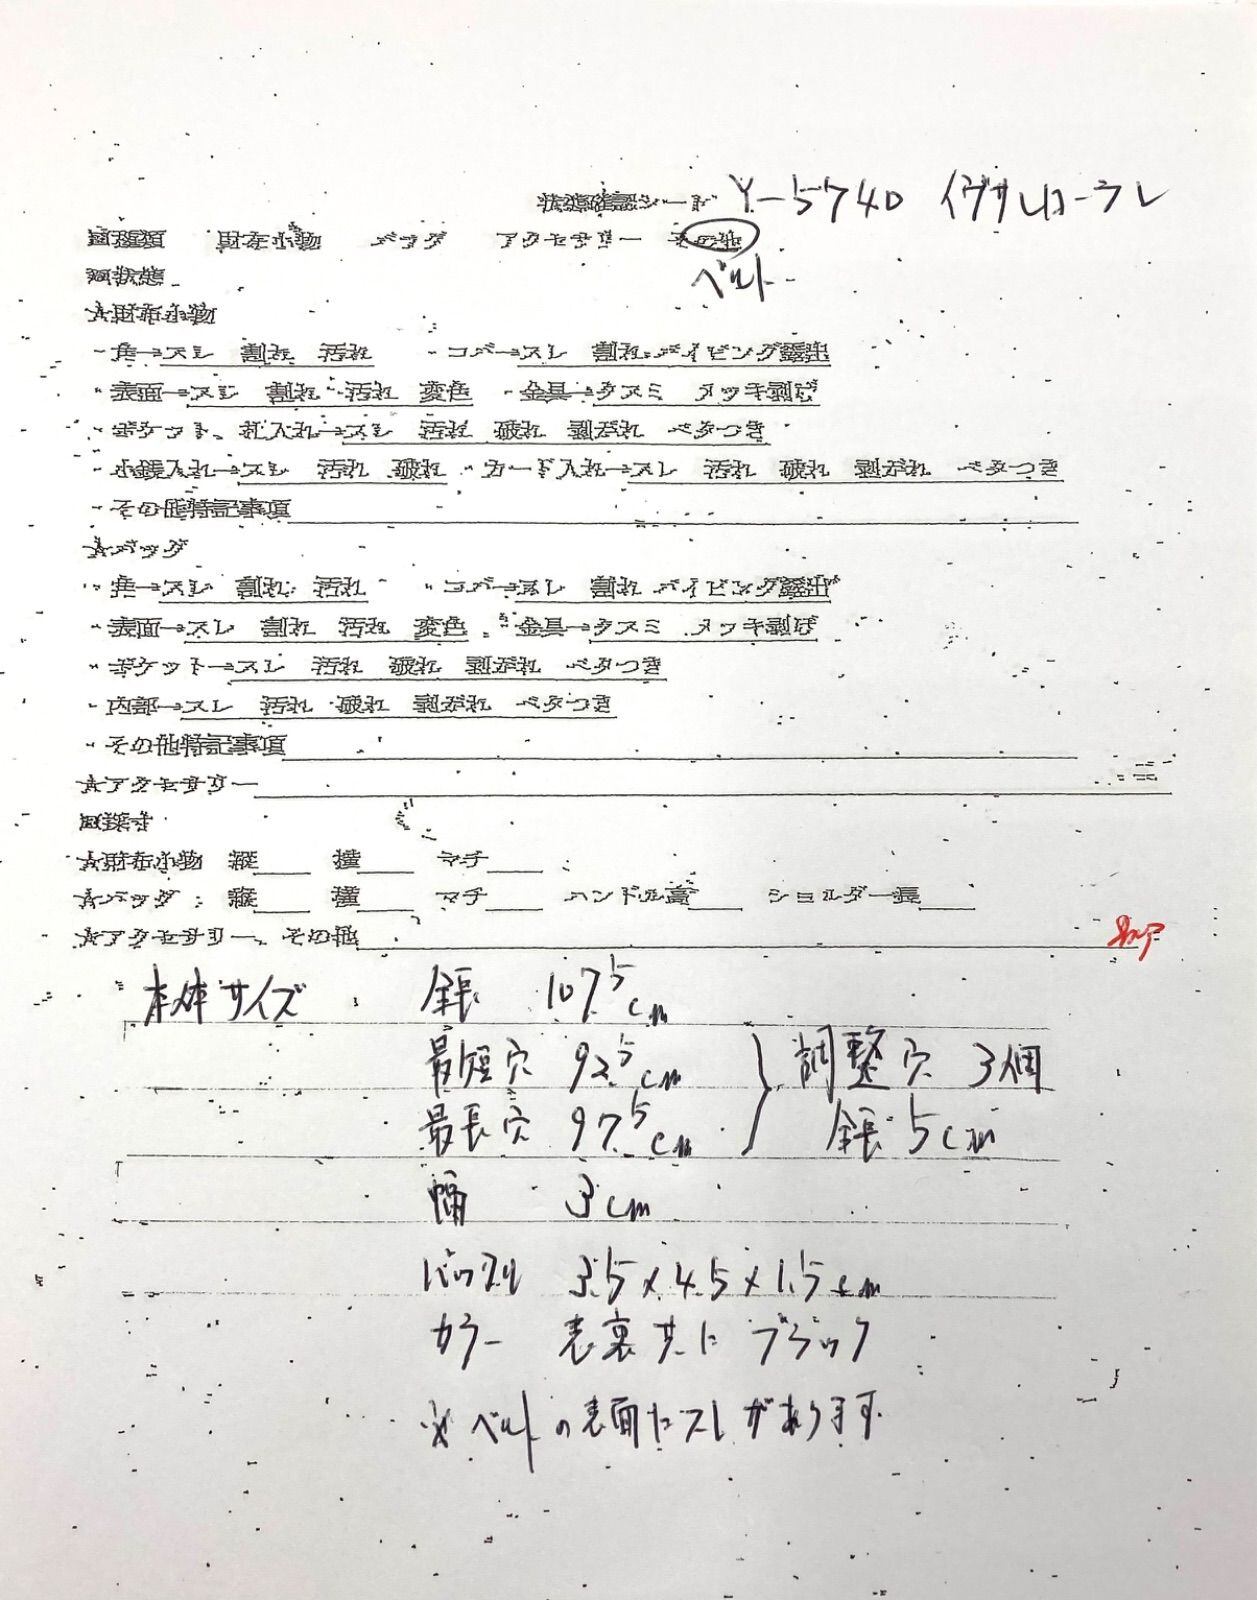 状態確認シード Y-5740 イヴサンローラン
回種類 財布小物 バッグ アクセサリー その他
ベルト
回状態
★財布小物
・角→スレ 割れ 汚れ ・コバ→スレ 割れ パイピング露出
・表面→スレ 割れ 汚れ 変色 ・金具→クスミ メッキ剥げ
・ポケット、札入れ→スレ 汚れ 破れ 剥がれ ベタつき
・小銭入れ→スレ 汚れ 破れ ・カード入れ→スレ 汚れ 破れ 剥がれ ベタつき
・その他特記事項
★バッグ
・角→スレ 割れ 汚れ ・コバ→スレ 割れ パイピング露出
・表面→スレ 割れ 汚れ 変色 ・金具→クスミ メッキ剥げ
・ポケット→スレ 汚れ 破れ 剥がれ ベタつき
・内部→スレ 汚れ 破れ 剥がれ ベタつき
・その他特記事項
★アクセサリー
回採寸
★財布小物 縦 横 マチ
★バッグ 縦 横 マチ ハンドル高 ショルダー長
★アクセサリー、その他
本体サイズ 全長 107.5cm
最短穴 92.5cm
調整穴 3個
最長穴 97.5cm
全長 5cm
幅 3cm
バックル 3.5×4.5×1.5cm
カラー 表裏共に ブラック
※ベルトの表面にスレがあります。